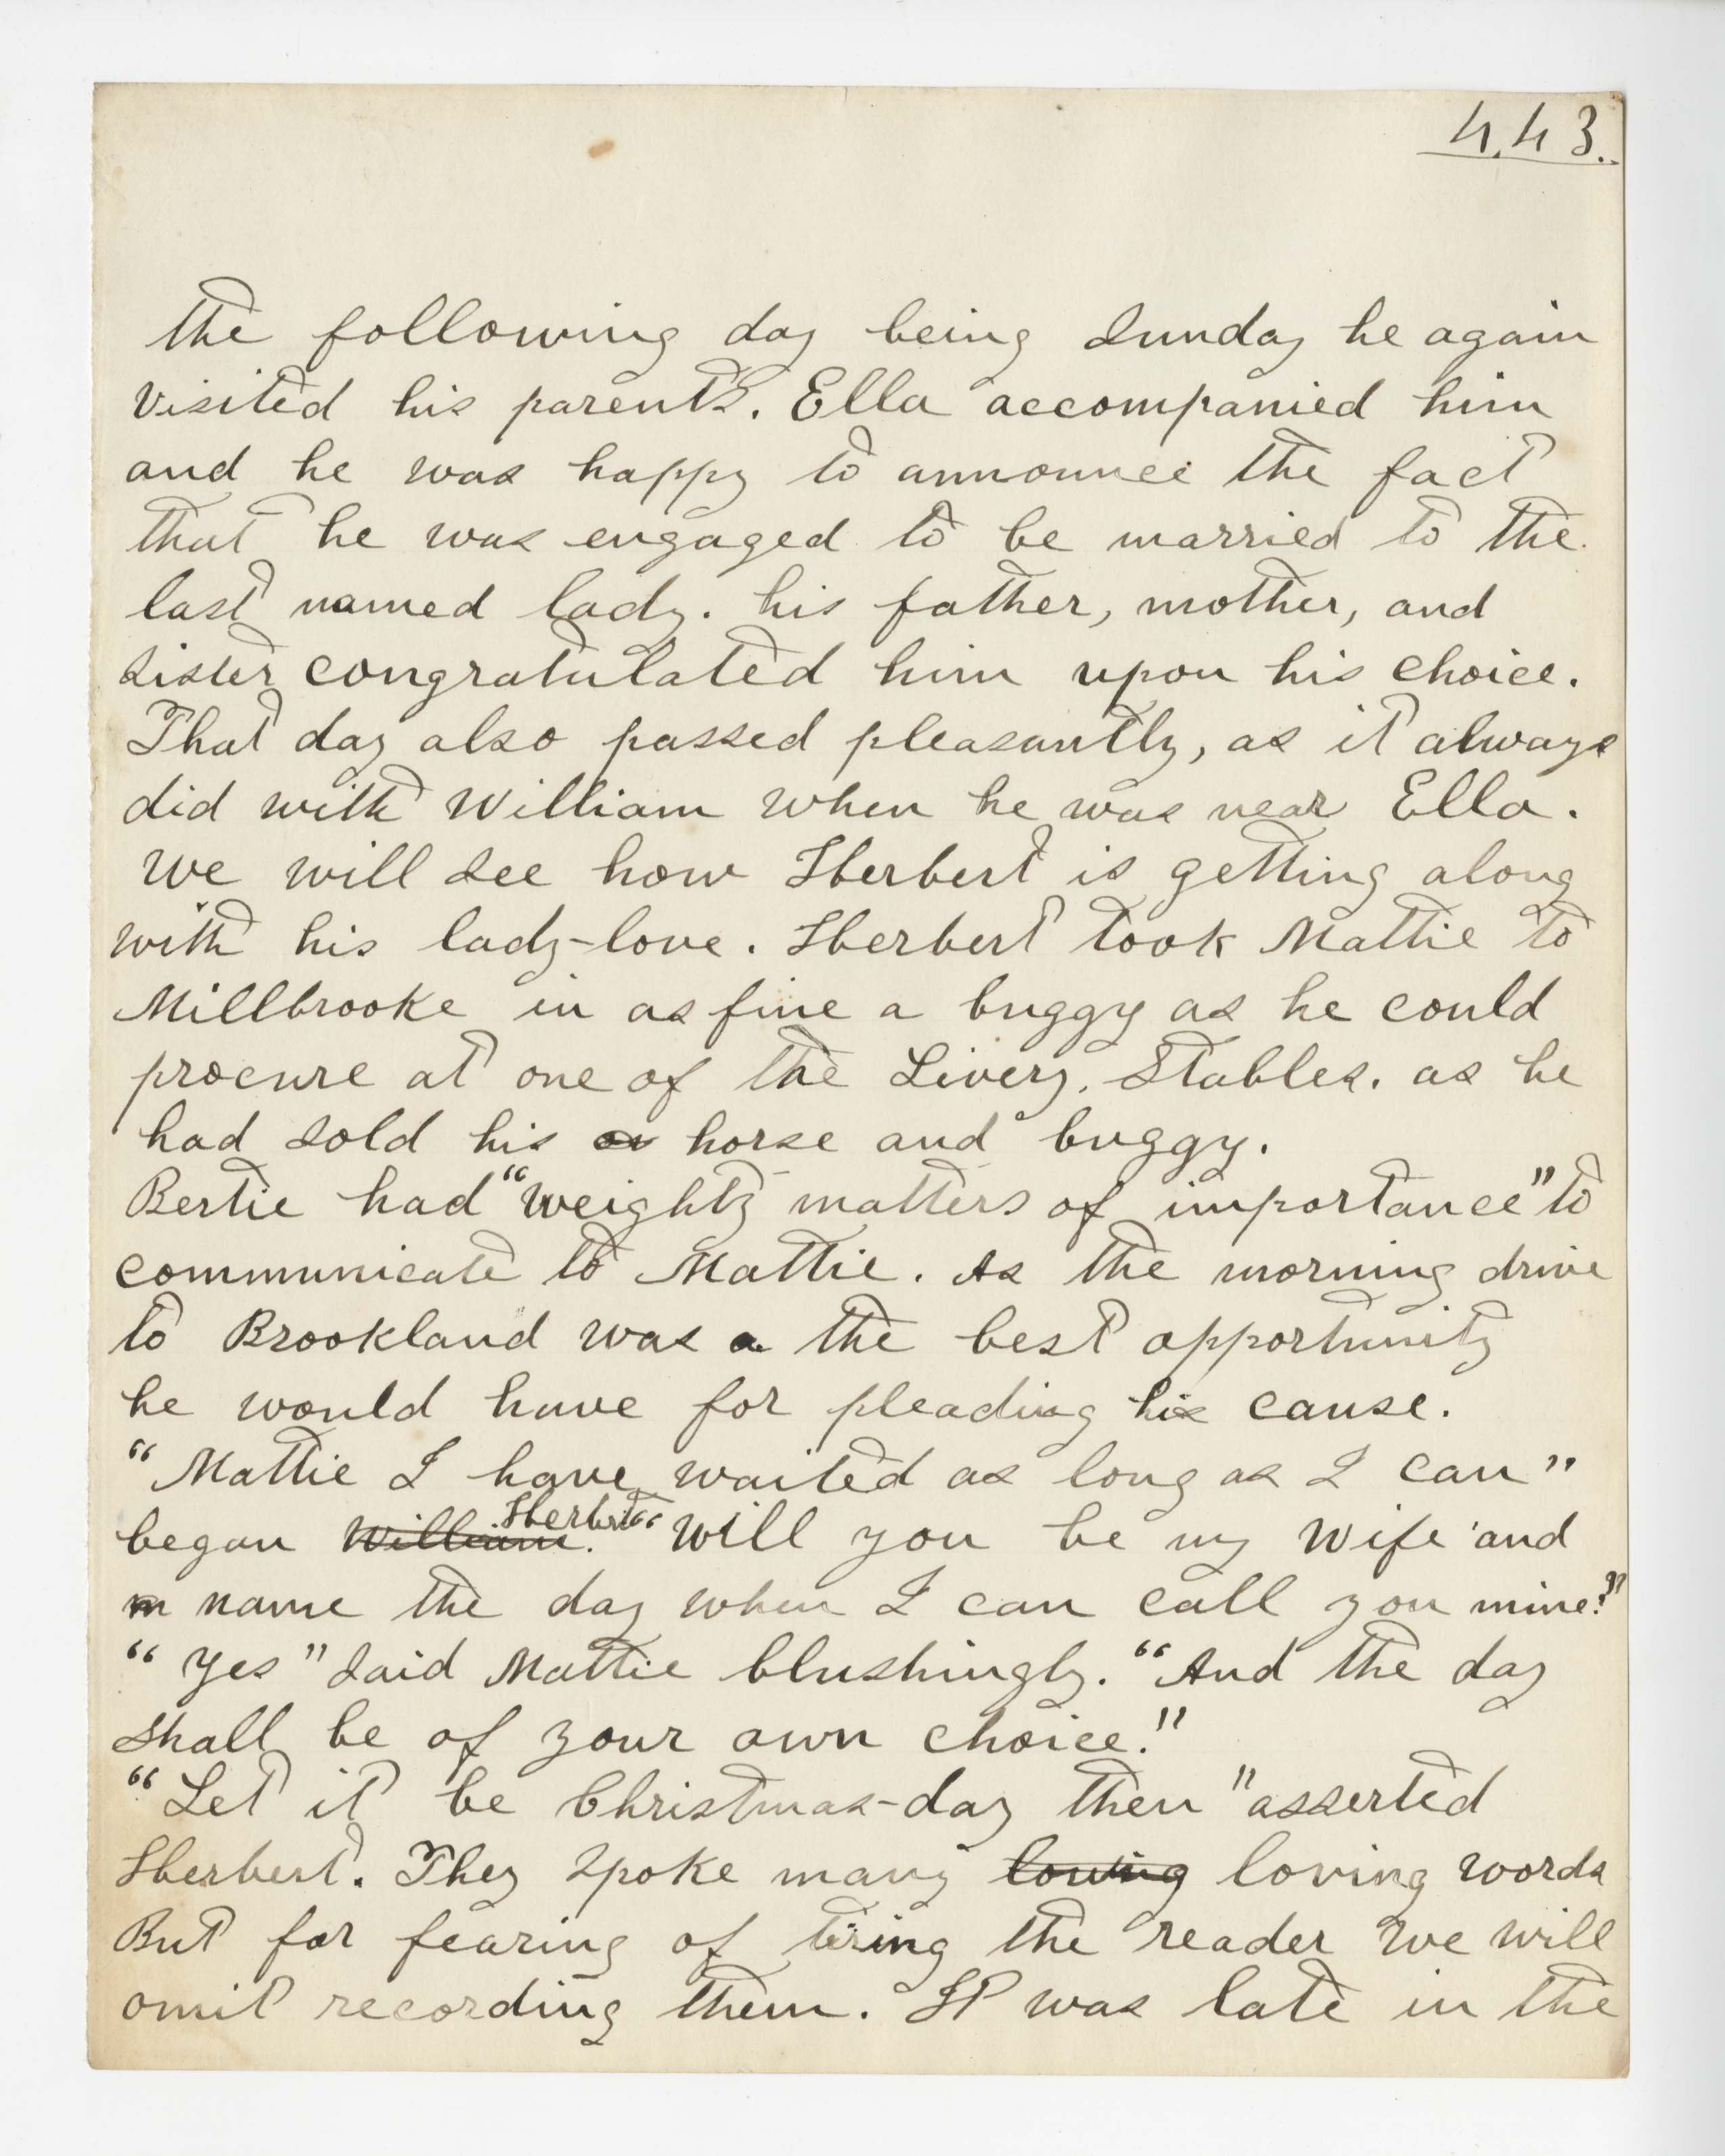 443.
the following day being Sunday he again
visited his parents. Ella accompanied him
and he was happy to announce the fact
that he was engaged to be married to the
last named lady. his father, mother, and
sister congratulated him upon his choice.
That day also passed pleasantly, as it always
did with William when he was near Ella.
we will see how Herbert is getting along
with his lady-love. Herbert took Mattie to
Millbrooke in as fine a buggy as he could
procure at one of the Livery. Stables. as he
had sold his horse and buggy.
Bertie had "weighty matters of importance" to
communicate to Mattie. As the morning drive
to Brookland was a the best opportunity
he would have for pleading his cause.
"Mattie I have waited as long as I can"
began William. Herbert "Will you be my wife and
m name the day when I can call you mine?"
"Yes" said Mattie blushingly. "And the day
shall be of your own choice."
"Let it be Christmas-day then" asserted
Herbert. They spoke many loving loving words
But for fearing of tiring the reader we will
omit recording them. It was late in the